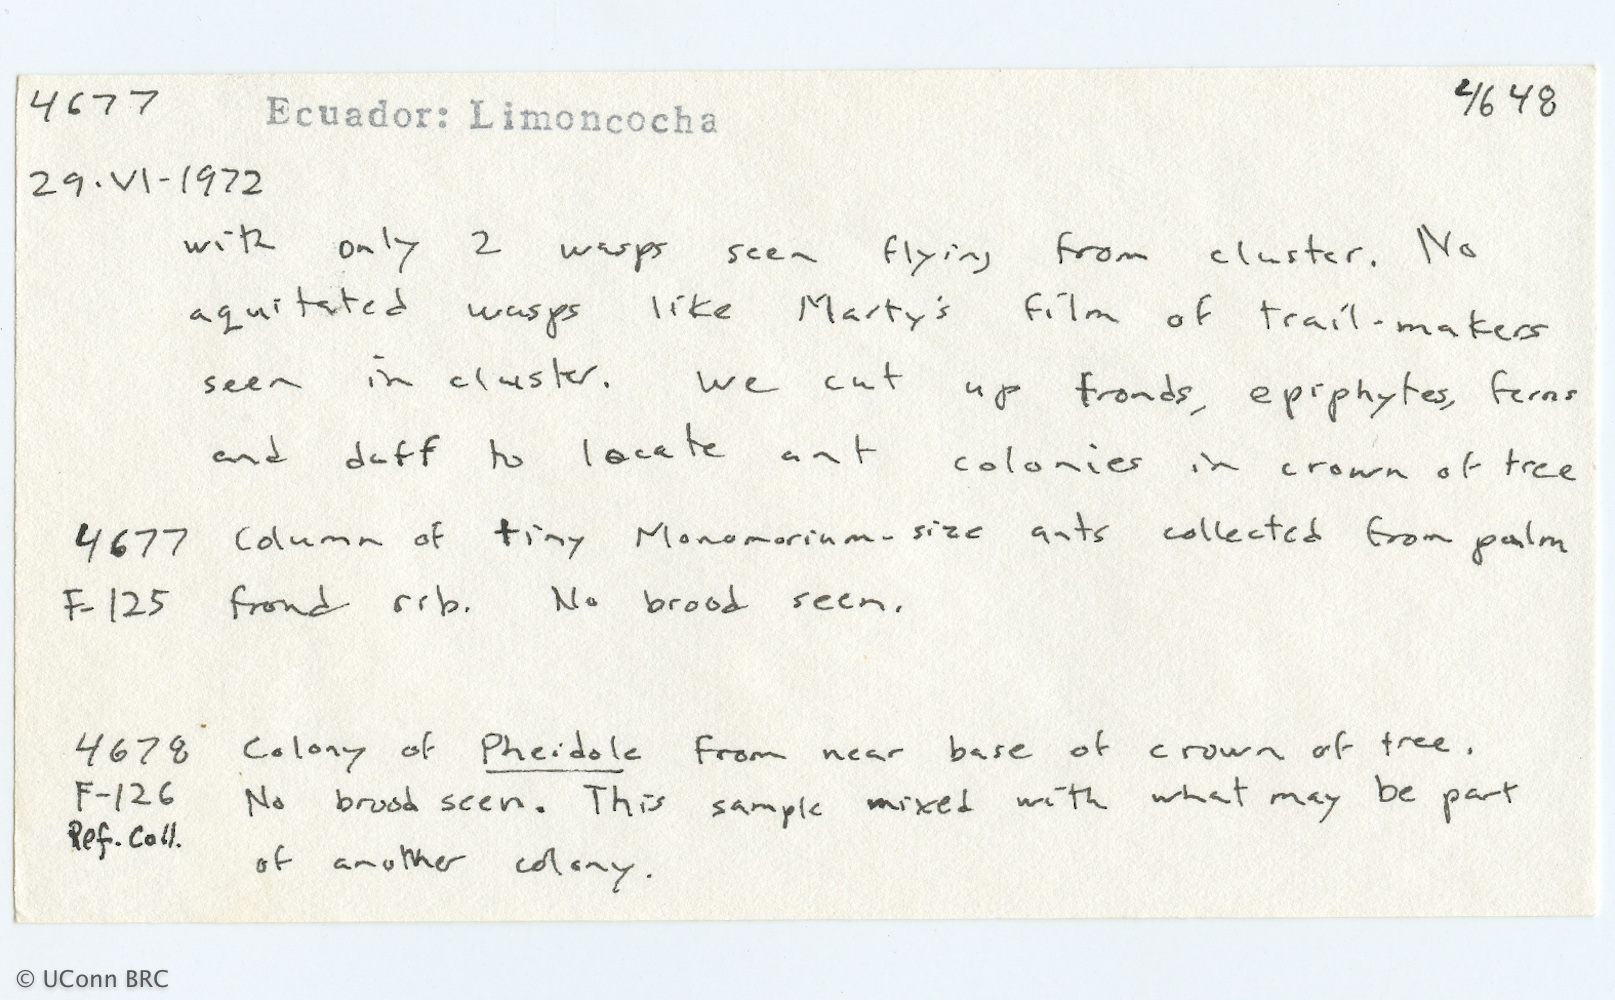 4677 Ecuador: Limoncocha 4648
29.VI-1972
with only 2 wasps seen flying from cluster. No
aquitated wasps like Marty's film of trail-makers
seen in cluster. We cut up fronds, epiphytes, ferns
and duff to locate ant colonies in crown of tree
4677 Column of tiny Monomorium-size ants collected from palm
F-125 frond rib. No brood seen.
4678 Colony of Pheidole from near base of crown of tree.
F-126 No brood seen. This sample mixed with what may be part
Ref. Coll.
of another colony.
© UConn BRC